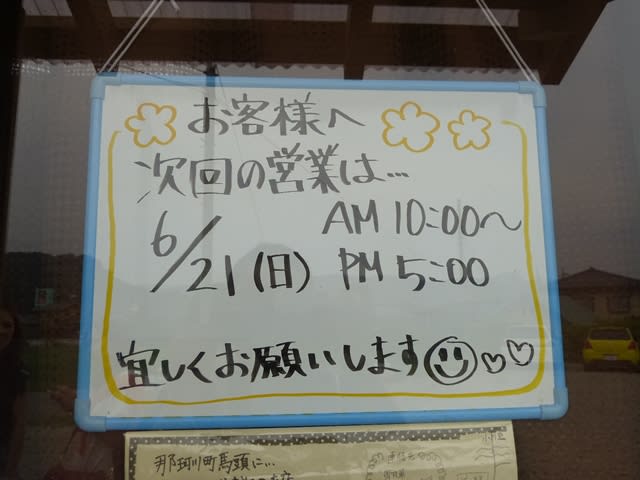 お客様へ
次回の営業は…
6/21(日) AM 10:00～
PM 5:00
宜しくお願いします
那珂川町馬頭に…